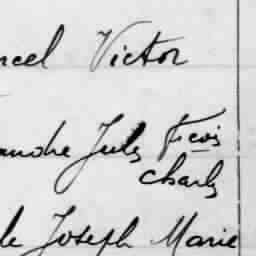 rcel Victor
andre Jules Fçois
Charles
le Joseph Marie